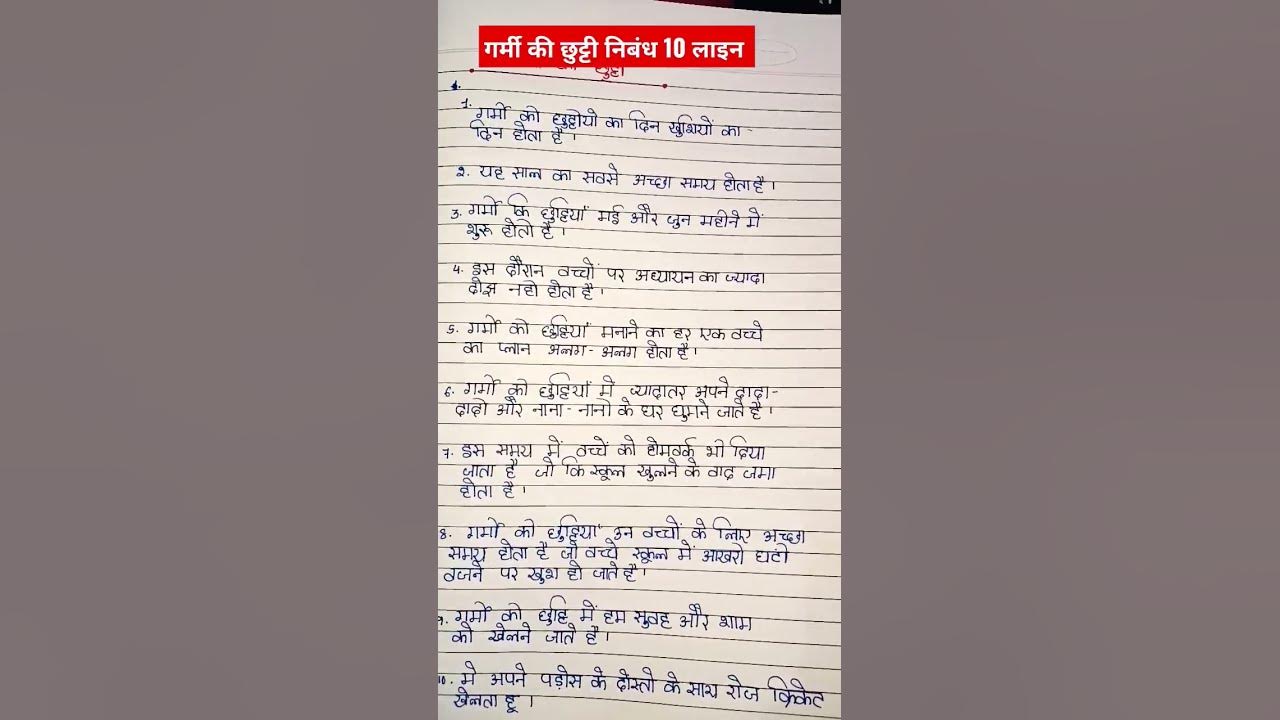 गर्मी की छुट्टी निबंध 10 लाइन
1.
1. गर्मी की छुट्टीयो का दिन खुशियों का -
दिन होता है।
2. यह साल का सबसे अच्छा समय होता है।
3. गर्मी कि छुट्टियाँ मई और जुन महीने में
शुरू होती है।
4. इस दौरान बच्चों पर अध्यायन का ज्यादा
बोझ नही होता है।
5. गर्मी की छुट्टियाँ मनाने का हर एक बच्चे
का प्लान अलग - अलग होता है।
6. गर्मी की छुट्टियों में ज्यादातर अपने दादा -
दादी और नाना - नानी के घर घुमने जाते है।
7. इस समय में बच्चें को होमवर्क भी दिया
जाता है जो कि स्कूल खुलने के बाद जमा
होता है।
8. गर्मी की छुट्टियाँ उन बच्चों के लिए अच्छा
समय होता है जो बच्चे स्कूल में आखरी घंटी
बजने पर खुश हो जाते है।
9. गर्मी की छुट्टि में हम सुबह और शाम
को खेलने जाते है।
10. मे अपने पड़ोस के दोस्तो के साथ रोज क्रिकेट
खेलता हू।